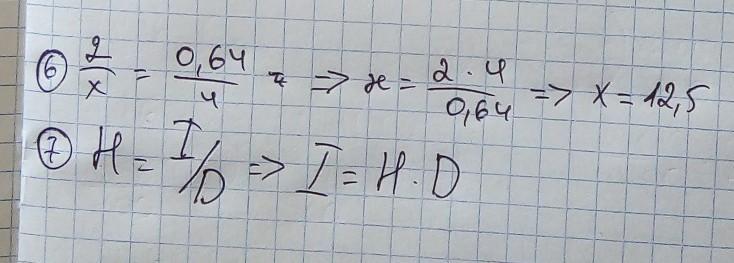 ⑥ 2/x = 0,64/4 => x = 2·4/0,64 => x = 12,5
⑦ H = I/D => I = H·D